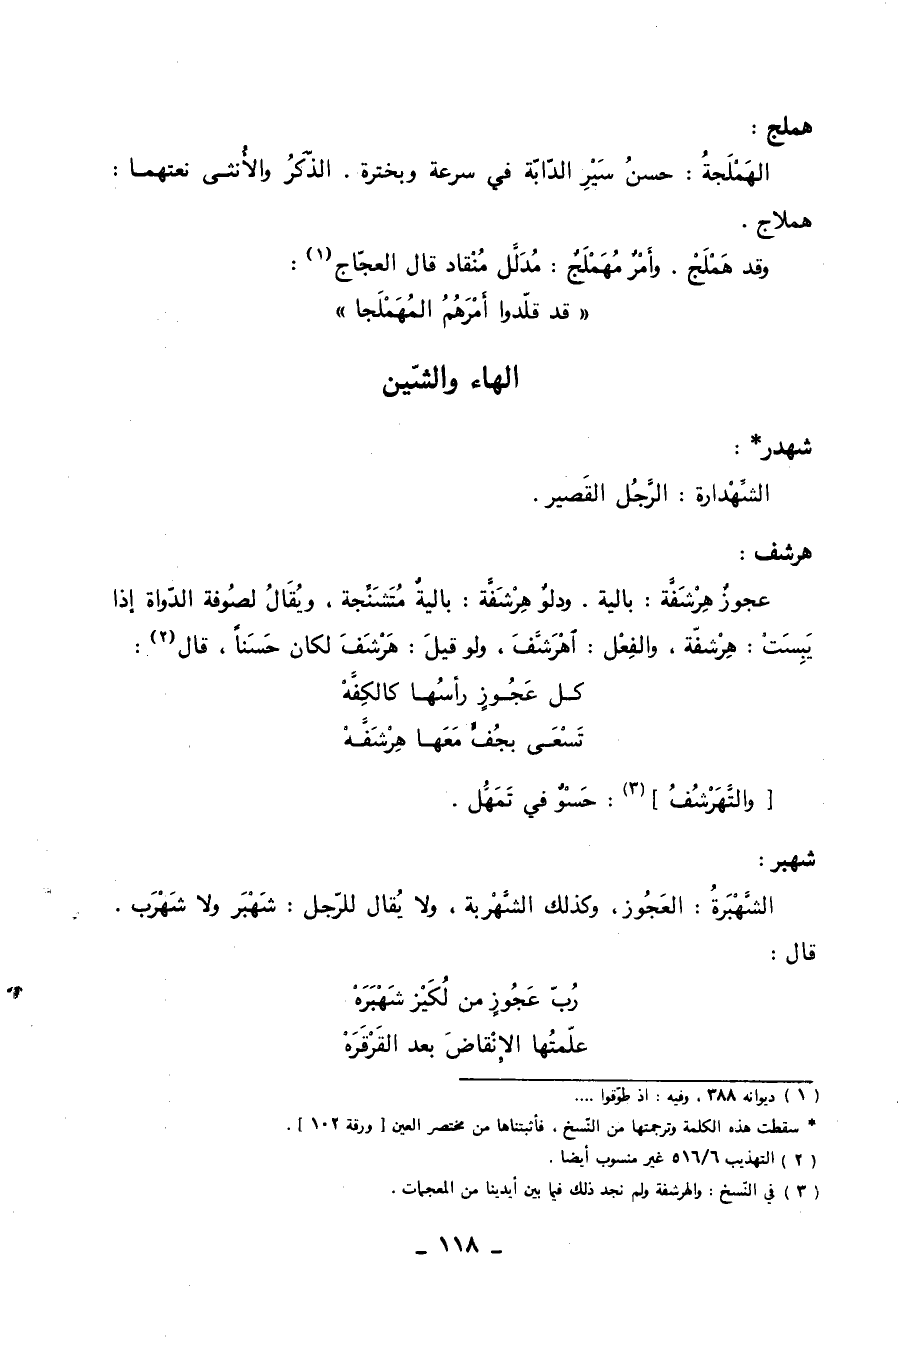 هملج :
الهَمْلَجةُ : حسنُ سَيْرِ الدّابّة في سرعة وبخترة . الذّكَرُ والأُنثى نعتهما :
هملاج .
وقد هَمْلَجْ . وأَمْرٌ مُهَمْلَجٌ : مُدَلَّل مُنْقاد قال العجّاج(١) :
« قد قلّدوا أَمْرَهُمُ المُهَمْلَجا »
الهاء والشّين
شهدر* :
الشَّهْدارة : الرَّجُل القَصير .
هرشف :
عجوزٌ هِرْشَفَّة : بالية . ودلوٌ هِرْشَفَّة : باليةٌ مُتَشَنِّجة ، ويُقَالُ لصُوفة الدّواة إذا
يَبِسَتْ : هِرْشفّة ، والفِعْل : آهْرَشَّفَ ، ولو قيلَ : هَرْشَفَ لكان حَسَناً ، قال(٢) :
كل عَجُوزٍ رأسُها كالكِفَّهْ
تَسْعَى بجُفٍّ مَعَها هِرْشَفَّهْ
[ والتَّهَرْشُفُ ](٣) : حَسْوٌ في تَمَهُّل .
شهبر :
الشَّهْبَرةُ : العَجُوز، وكذلك الشَّهْربة ، ولا يُقال للرّجل : شَهْبَر ولا شَهْرَب .
قال :
رُبّ عَجُوزٍ من لُكَيْز شَهْبَرَهْ
علّمتُها الإنْقاضَ بعد القَرْقَرَهْ
( ١ ) ديوانه ٣٨٨ ، وفيه : اذ طوّقوا ....
* سقطت هذه الكلمة وترجمتها من النّسخ ، فأثبتناها من مختصر العين [ ورقة ١٠٢ ] .
( ٢ ) التهذيب ٥١٦/٦ غير منسوب أيضا .
( ٣ ) في النّسخ : والهرشفة ولم نجد ذلك فيما بين أيدينا من المعجمات .
ـ ١١٨ ـ